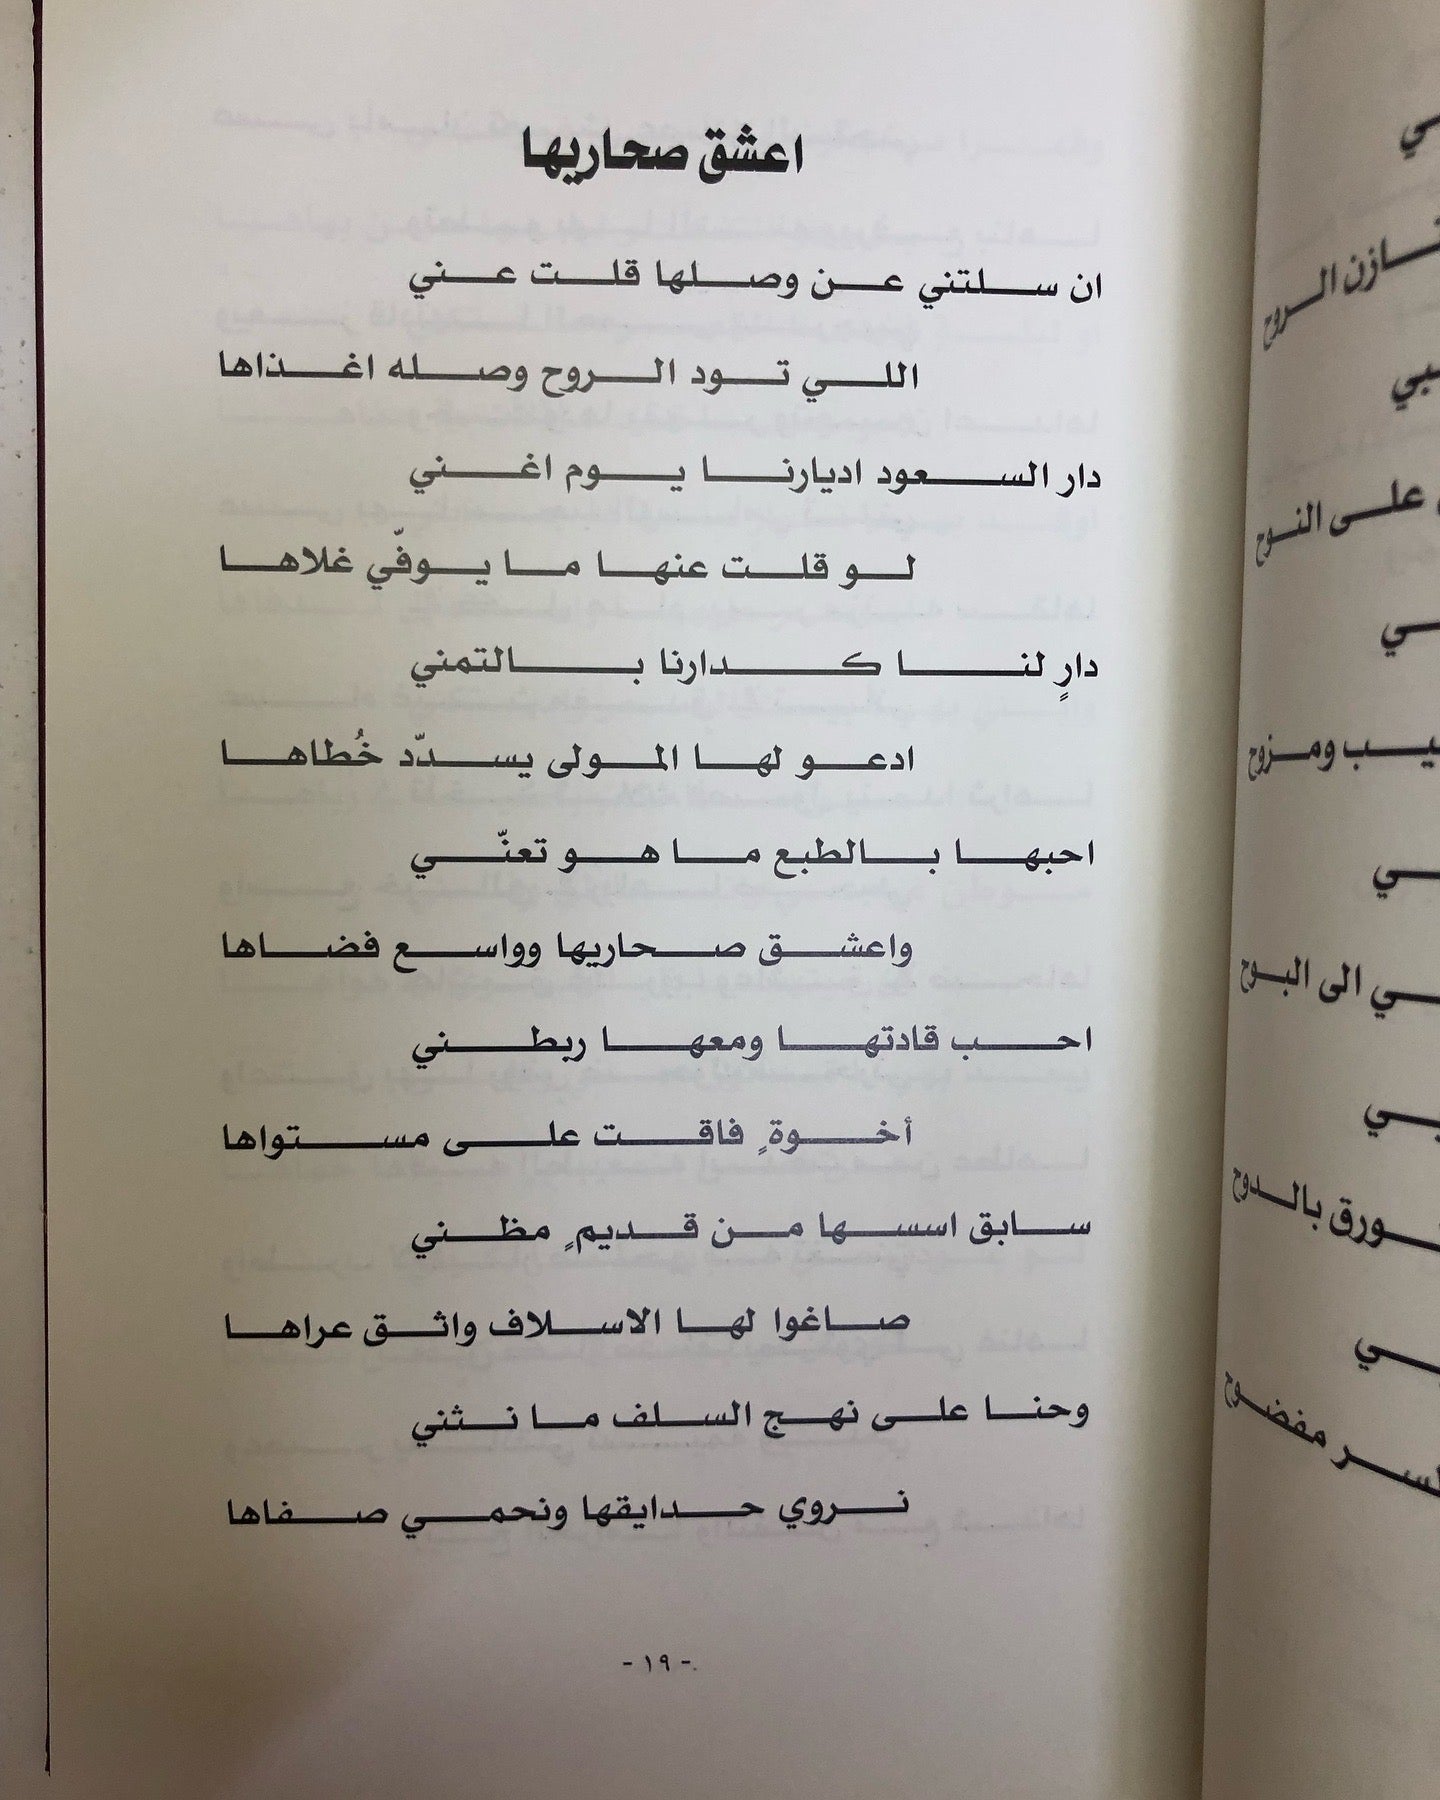 اعشق صحاريها
ان سلتني عن وصلها قلت عني
اللي تود الروح وصله اغذاها
دار السعود اديارنا يوم اغني
لو قلت عنها ما يوفّي غلاها
دارٍ لنا كدارنا بالتمني
ادعو لها المولى يسدّد خُطاها
احبها بالطبع ما هو تعنّي
واعشق صحاريها وواسع فضاها
احب قادتها ومعها ربطني
أخوةٍ فاقت على مستواها
سابق اسسها من قديمٍ مظني
صاغوا لها الاسلاف واثق عراها
وحنا على نهج السلف ما نثني
نروي حدايقها ونحمي صفاها
- ١٩ -
ـازن الروح
على النوح
ـيب ومزوح
ـي الى البوح
ـورق بالدوح
ـلسر مفضوح